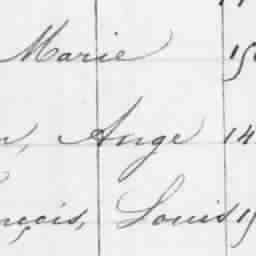 Marie 15
n, Ange 14
nçois, Louis 15